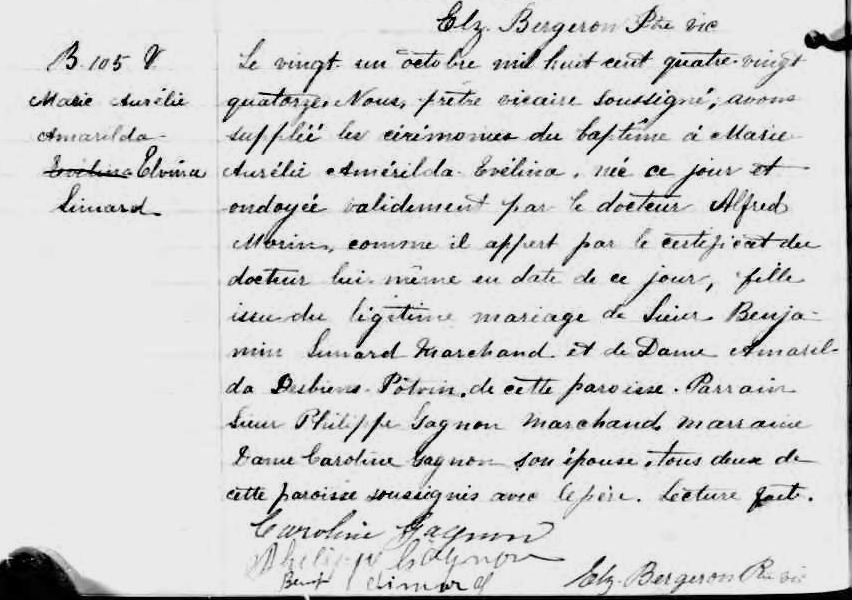 Elz. Bergeron Ptre vic
B. 105 V
Marie Aurélie
Amarilda
Evélina Elvina
Simard
Le vingt-un octobre mil huit cent quatre-vingt
quatorze, Nous, prêtre vicaire soussigné, avons
suppléé les cérémonies du baptême à Marie
Aurélie Amérilda Evélina, née ce jour et
ondoyée validement par le docteur Alfred
Morin, comme il appert par le certificat du
docteur lui-même en date de ce jour, fille
issue du légitime mariage de Sieur Benja-
min Simard Marchand et de Dame Amaril-
da Desbiens-Potvin, de cette paroisse. Parrain
Sieur Philippe Gagnon Marchand, marraine
Dame Caroline Gagnon son épouse, tous deux de
cette paroisse soussignés avec le père. Lecture faite.
Caroline Gagnon
Philippe Gagnon
Benj Simard
Elz. Bergeron Ptre vic